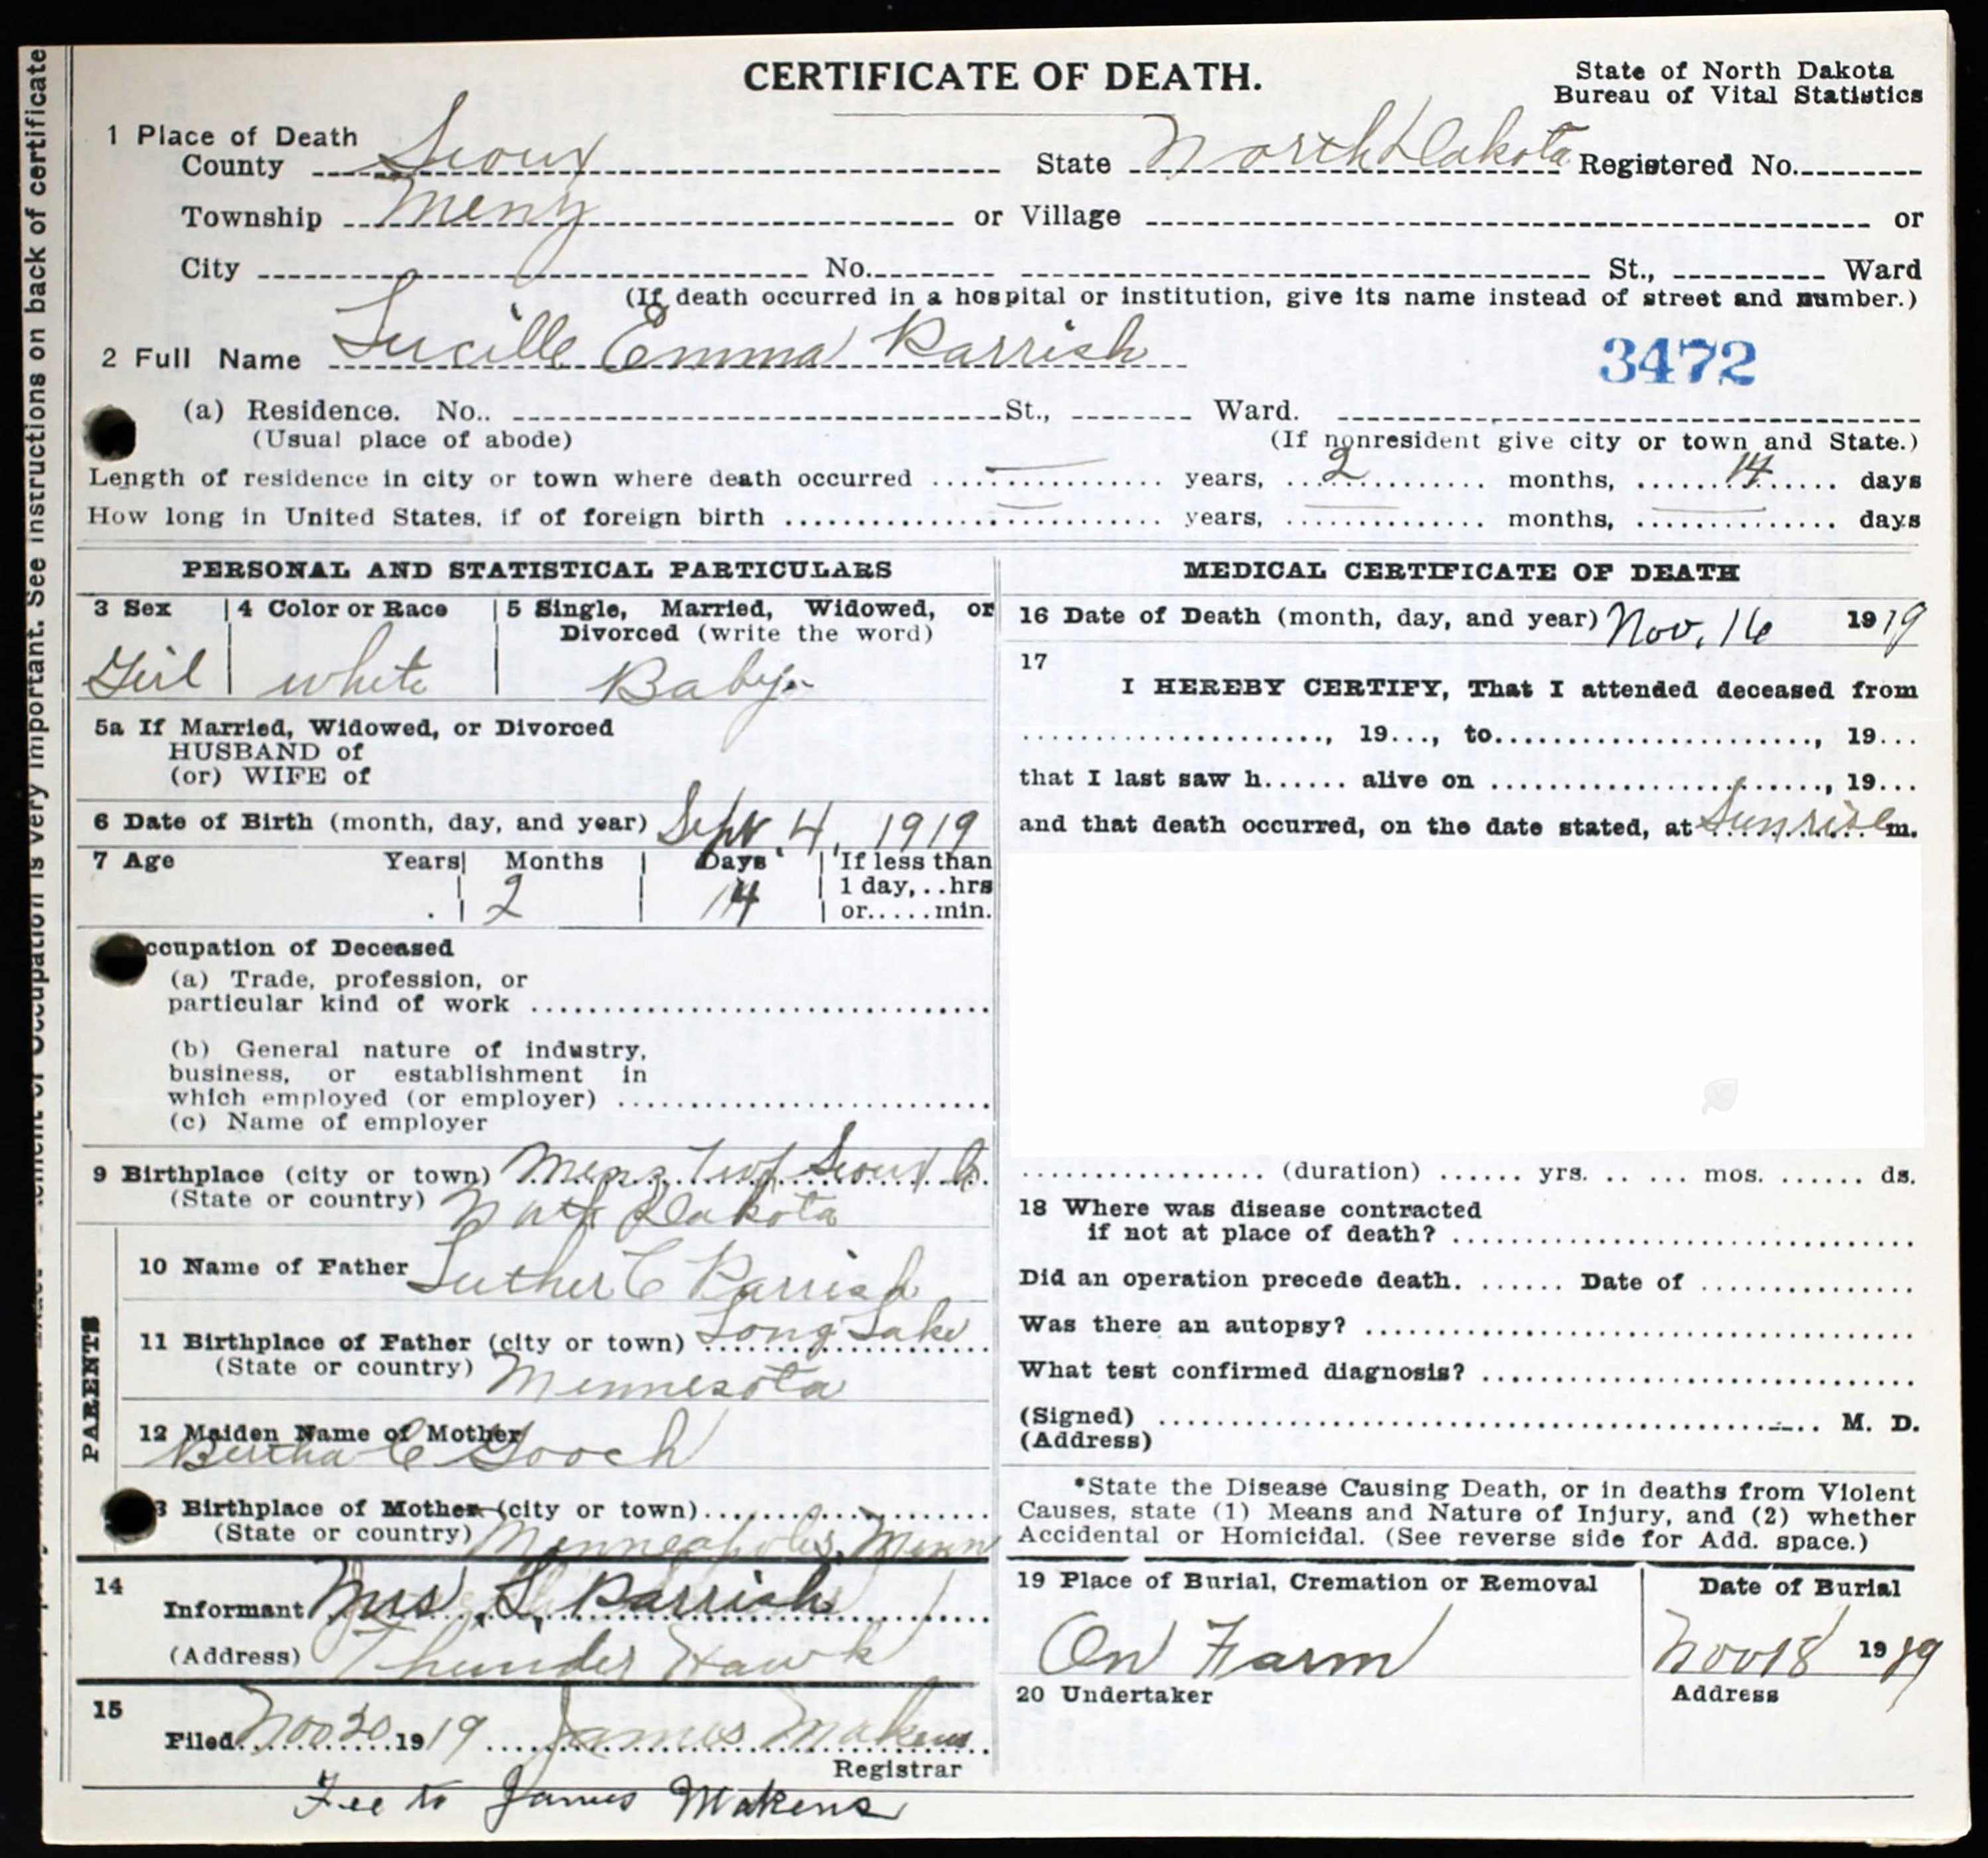 CERTIFICATE OF DEATH.
State of North Dakota
Bureau of Vital Statistics
1 Place of Death
County Sioux State North Dakota Registered No.
Township Menz or Village or
City No. St., Ward
(If death occurred in a hospital or institution, give its name instead of street and number.)
2 Full Name Lucille Emma Parrish
3472
(a) Residence. No.. St., Ward.
(Usual place of abode) (If nonresident give city or town and State.)
Length of residence in city or town where death occurred — years, 2 months, 14 days
How long in United States, if of foreign birth — years, — months, — days
PERSONAL AND STATISTICAL PARTICULARS
3 Sex 4 Color or Race 5 Single, Married, Widowed, or
Divorced (write the word)
Girl white Baby
5a If Married, Widowed, or Divorced
HUSBAND of
(or) WIFE of
6 Date of Birth (month, day, and year) Sept. 4, 1919
7 Age Years Months Days If less than
1 day, ..hrs
2 14 or.....min.
ccupation of Deceased
(a) Trade, profession, or
particular kind of work
(b) General nature of industry,
business, or establishment in
which employed (or employer)
(c) Name of employer
9 Birthplace (city or town) Menz Twp Sioux Co
(State or country) North Dakota
PARENTS
10 Name of Father Luther C Parrish
11 Birthplace of Father (city or town) Long Lake
(State or country) Minnesota
12 Maiden Name of Mother
Bertha E Gooch
3 Birthplace of Mother (city or town)
(State or country) Minneapolis, Minn
14
Informant Mrs. L. Parrish
(Address) Thunder Hawk
15
Filed Nov 20 1919 James Makens
Registrar
Fee to James Makens
MEDICAL CERTIFICATE OF DEATH
16 Date of Death (month, day, and year) Nov. 16 1919
17
I HEREBY CERTIFY, That I attended deceased from
, 19..., to , 19...
that I last saw h...... alive on , 19...
and that death occurred, on the date stated, at Sunrise m.
(duration) yrs. mos. ds.
18 Where was disease contracted
if not at place of death?
Did an operation precede death. Date of
Was there an autopsy?
What test confirmed diagnosis?
(Signed) M. D.
(Address)
*State the Disease Causing Death, or in deaths from Violent
Causes, state (1) Means and Nature of Injury, and (2) whether
Accidental or Homicidal. (See reverse side for Add. space.)
19 Place of Burial, Cremation or Removal Date of Burial
On Farm Nov 18 1919
20 Undertaker Address
Occupation is very important. See instructions on back of certificate